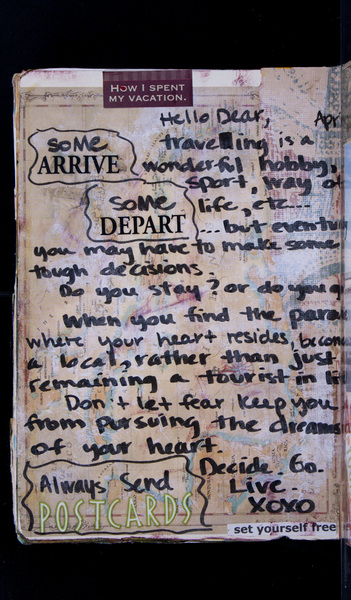 HOW I SPENT
MY VACATION.
Hello Dear,
Apr
some
ARRIVE
travelling is a
wonderful hobby,
sport, way of
some
DEPART
life, etc...
...but eventu
you may have to make some
tough decisions.
Do you stay? or do you g
When you find the para
where your heart resides, becom
a local, rather than just
remaining a tourist in li
Don't let fear keep you
from pursuing the dreams
of your heart.
Decide. Go.
Live.
XOXO
Always Send
POSTCARDS
set yourself free